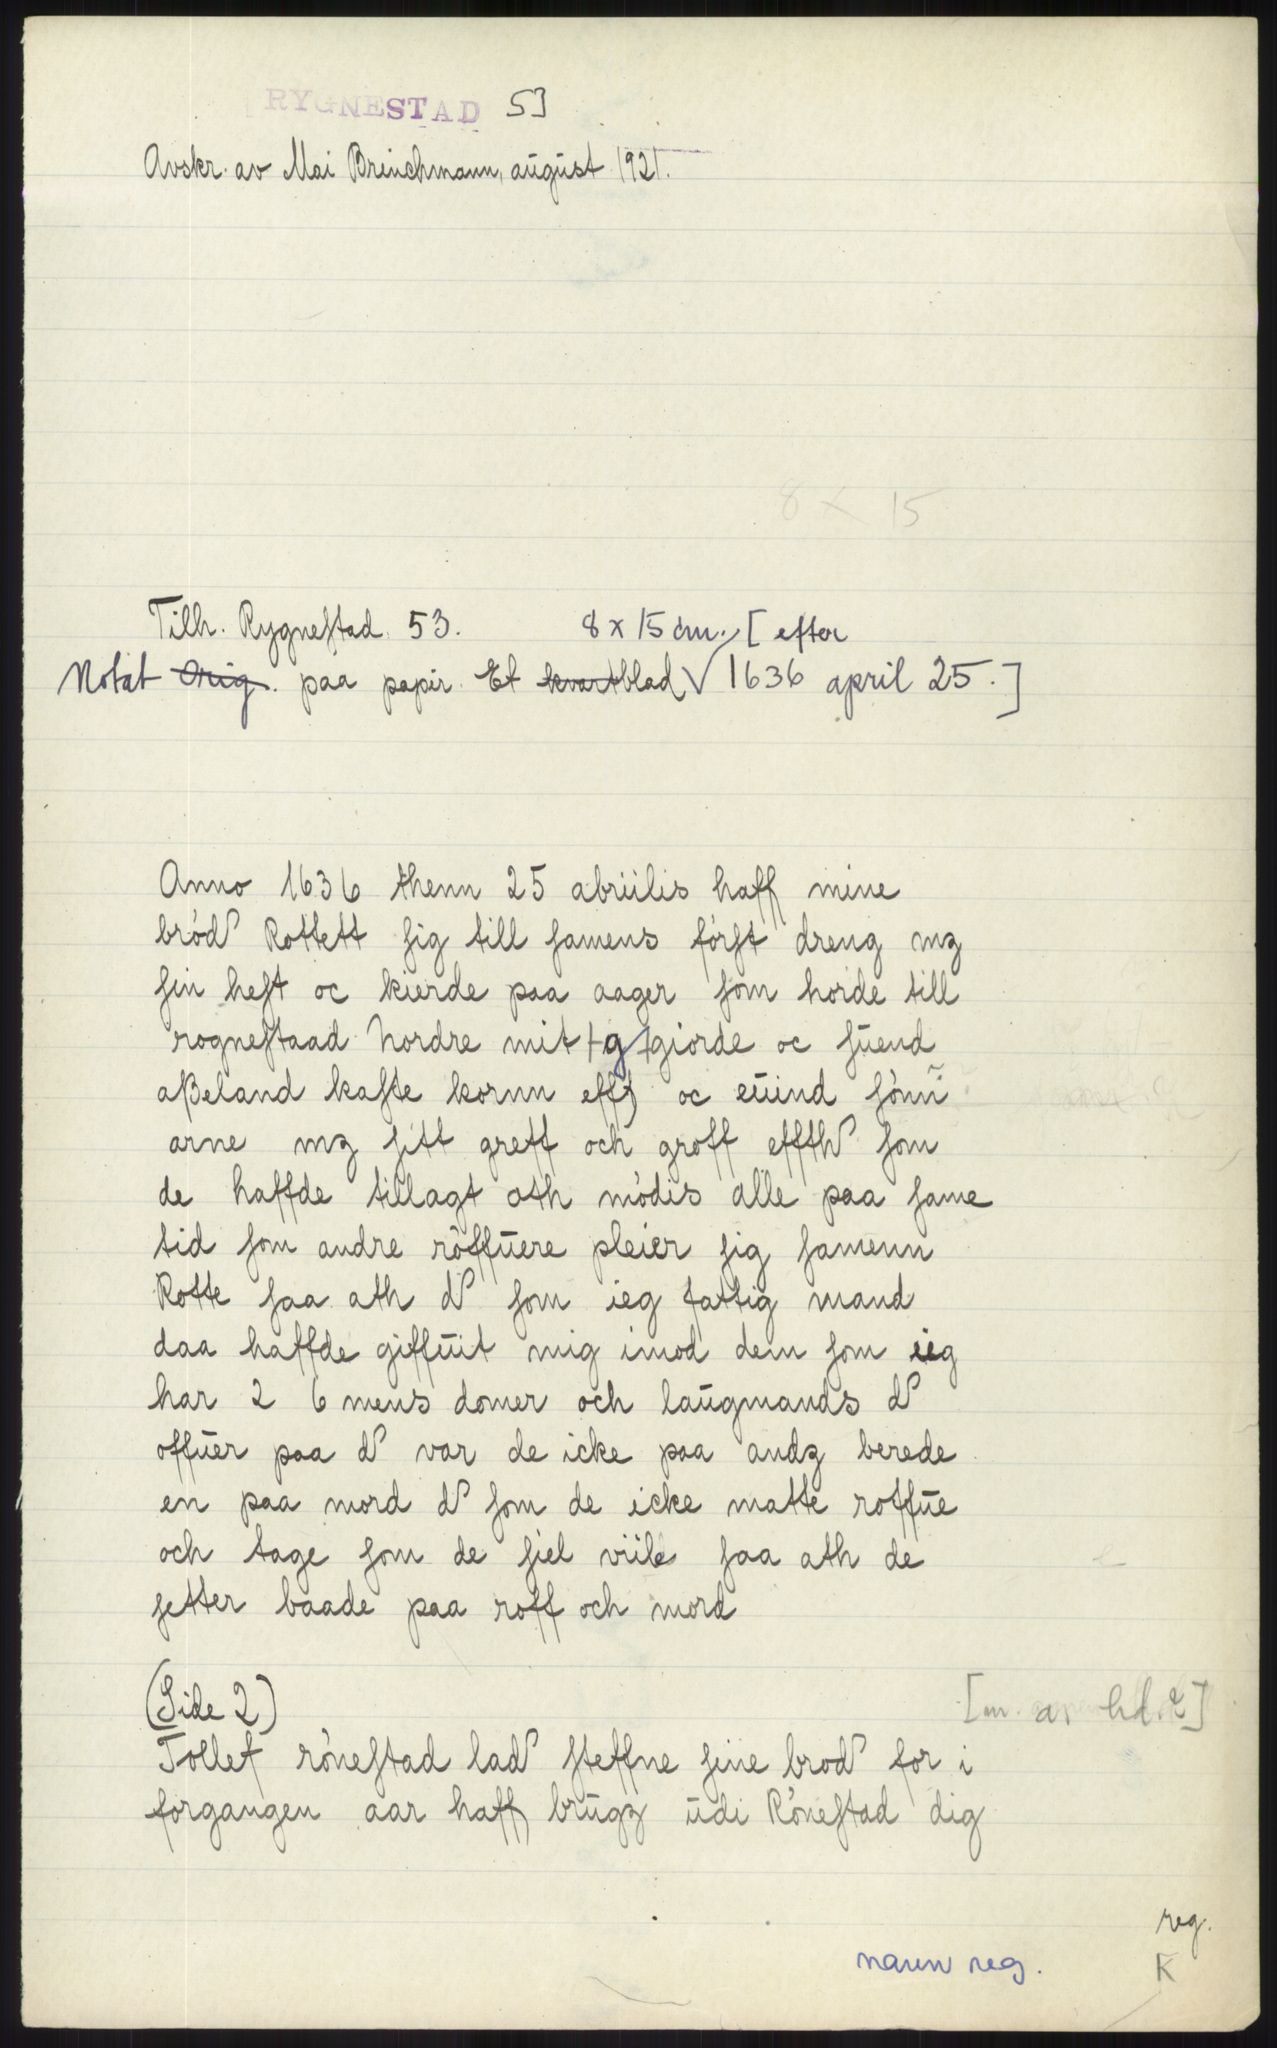 RYGNESTAD 53
Avskr. av Mai Brinchmann, august 1921.
8 x 15
Tilh. Rygneſtad 53. 8 x 15 cm. [efter
Notat Orig. paa papir. Et kvartblad √ 1636 april 25.]
Anno 1636 thenn 25 abriilis haff mine
bród Rottett ſig till ſamens fórſt dreng mz
ſin heſt oc kierde paa aager ſom horde till
rogneſtaad Nordre mit g giorde oc ſuend
aßeland kaſte kornn efft oc euind ſónn
arne mz ſitt greff och groff effth ſom
de haffde tillagt ath módis alle paa ſame
tid ſom andre róffuere pleier ſig ſamenn
Rotte ſaa ath d ſom ieg fattig mand
daa haffde giffuit mig imod dem ſom ieg
har 2 6 mens domer och laugmands d
offuer paa d var de icke paa andz berede
en paa mord d ſom de icke matte roffue
och tage ſom de ſiel viile ſaa ath de
ſetter baade paa roff och mord
(Side 2) [m. a. hd.?]
Tollef róneſtad lad ſteffne ſine brod for i
forgangen aar haff brugz udi Róneſtad dig
reg.
navn reg. K